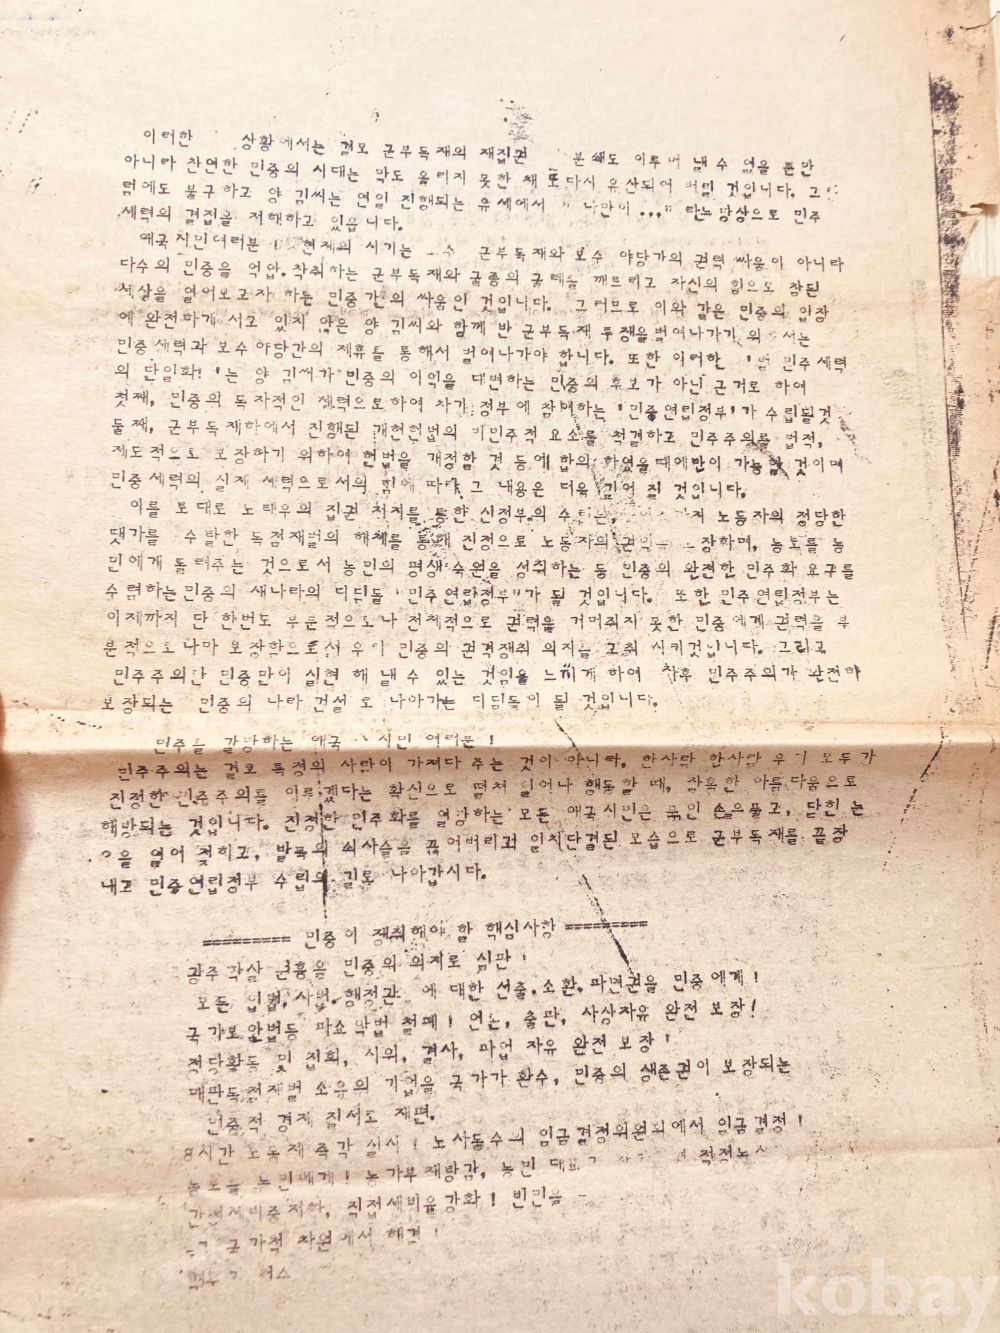 이러한 상황에서는 결코 군부독재의 재집권 분쇄도 이루어 낼 수 없을 뿐만
아니라 찬연한 민중의 시대는 막도 올리지 못한 채 또다시 유산되어 버릴 것입니다. 그
럼에도 불구하고 양 김씨는 연일 진행되는 유세에서 "나만이..." 라는 망상으로 민주
세력의 결집을 저해하고 있읍니다.
애국시민여러분! 현재의 시기는 군부독재와 보수 야당가의 권력 싸움이 아니라
다수의 민중을 억압.착취하는 군부독재와 굴종의 굴레를 깨뜨리고 자신의 힘으로 참된
세상을 열어보고자 하는 민중간의 싸움인 것입니다. 그러므로 이와 같은 민중의 입장
에 완전하게 서고 있지 않은 양 김씨와 함께 반 군부독재 투쟁을벌여나가기 위 서는
민중세력과 보수야당간의 제휴를 통해서 벌여나가야 합니다. 또한 이러한 '범 민주세력
의 단일화' 는 양 김씨가 민중의 이익을 대변하는 민중의 후보가 아닌 근거로 하여
첫째, 민중의 독자적인 세력으로하여 차기 정부에 참여하는 '민중연립정부'가 수립될것
둘째, 군부독재하에서 진행된 개헌헌법의 비민주적 요소를 척결하고 민주주의를 법적,
제도적으로 보장하기 위하여 헌법을 개정할 것 등에 합의 하였을때에만이 가능할 것이며
민중세력의 실제 세력으로서의 힘에 따라 그 내용은 더욱 깊어 질 것입니다.
이를 토대로 노태우의 집권 저지를 통한 신정부의 수립은, 노동자의 정당한
댓가를 수탈한 독점재벌의 해체를 통해 진정으로 노동자의 권익을 보장하며, 농토를 농
민에게 돌려주는 것으로서 농민의 평생 숙원을 성취하는 등 민중의 완전한 민주화 요구를
수렴하는민중의 새나라의 디딤돌 "민주연립정부"가 될 것입니다. 또한 민주연립정부는
이제까지 단 한번도 부분적으로나 전체적으로 권력을 거머쥐지 못한 민중에게 권력을 부
분적으로나마 보장함으로서 우리 민중의 권력쟁취 의지를 고취 시키것입니다. 그리고
민주주의란 민중만이 실현 해 낼 수 있는 것임을 느끼게 하여 향후 민주주의가 완전히
보장되는 민중의 나라 건설로 나아가는 디딤돌이 될 것입니다.
민주를 갈망하는 애국 시민 여러분!
민주주의는 결코 특정의 사람이 가져다 주는 것이 아니라. 한사람 한사람 우리 모두가
진정한 민주주의를 이루겠다는 확신으로 떨쳐 일어나 행동할 때, 참혹한 아름다움으로
해방되는 것입니다. 진정한 민주화를 열망하는 모든 애국시민은 묶인 손을풀고, 닫힌 눈
을 열어 젖히고, 발목의 쇠사슬을 끊어버리고 일치단결된 모습으로 군부독재를 끝장
내고 민중연립정부 수립의 길로 나아갑시다.
========= 민중이 쟁취해야 할 핵심사항 =========
광주학살 원흉을 민중의 의지로 심판!
모든 입법,사법.행정관 에 대한 선출.소환.파면권을 민중에게!
국가보안법등 파쇼악법 철폐! 언론, 출판, 사상자유 완전 보장!
정당활동 및 집회, 시위, 결사, 파업 자유 완전 보장!
매판독점재벌 소유의 기업을 국가가 환수, 민중의 생존권이 보장되는
민중적 경제 질서로 재편.
8시간 노동제 즉각 실시! 노사동수의 임금결정위원회에서 임금결정!
농토를 농민에게! 농가부채탕감, 농민 대표
간접세비중저하, 직접세비율강화! 빈민을
국가적 차원에서 해결!